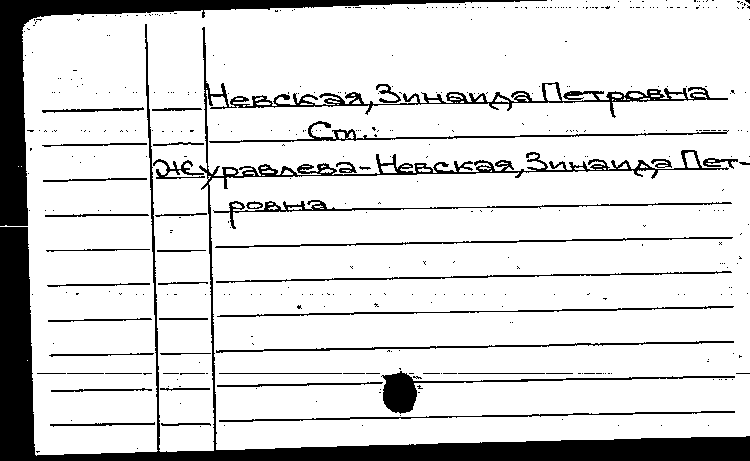 Невская, Зинаида Петровна
Ст.:
Журавлева-Невская, Зинаида Пет-
ровна.